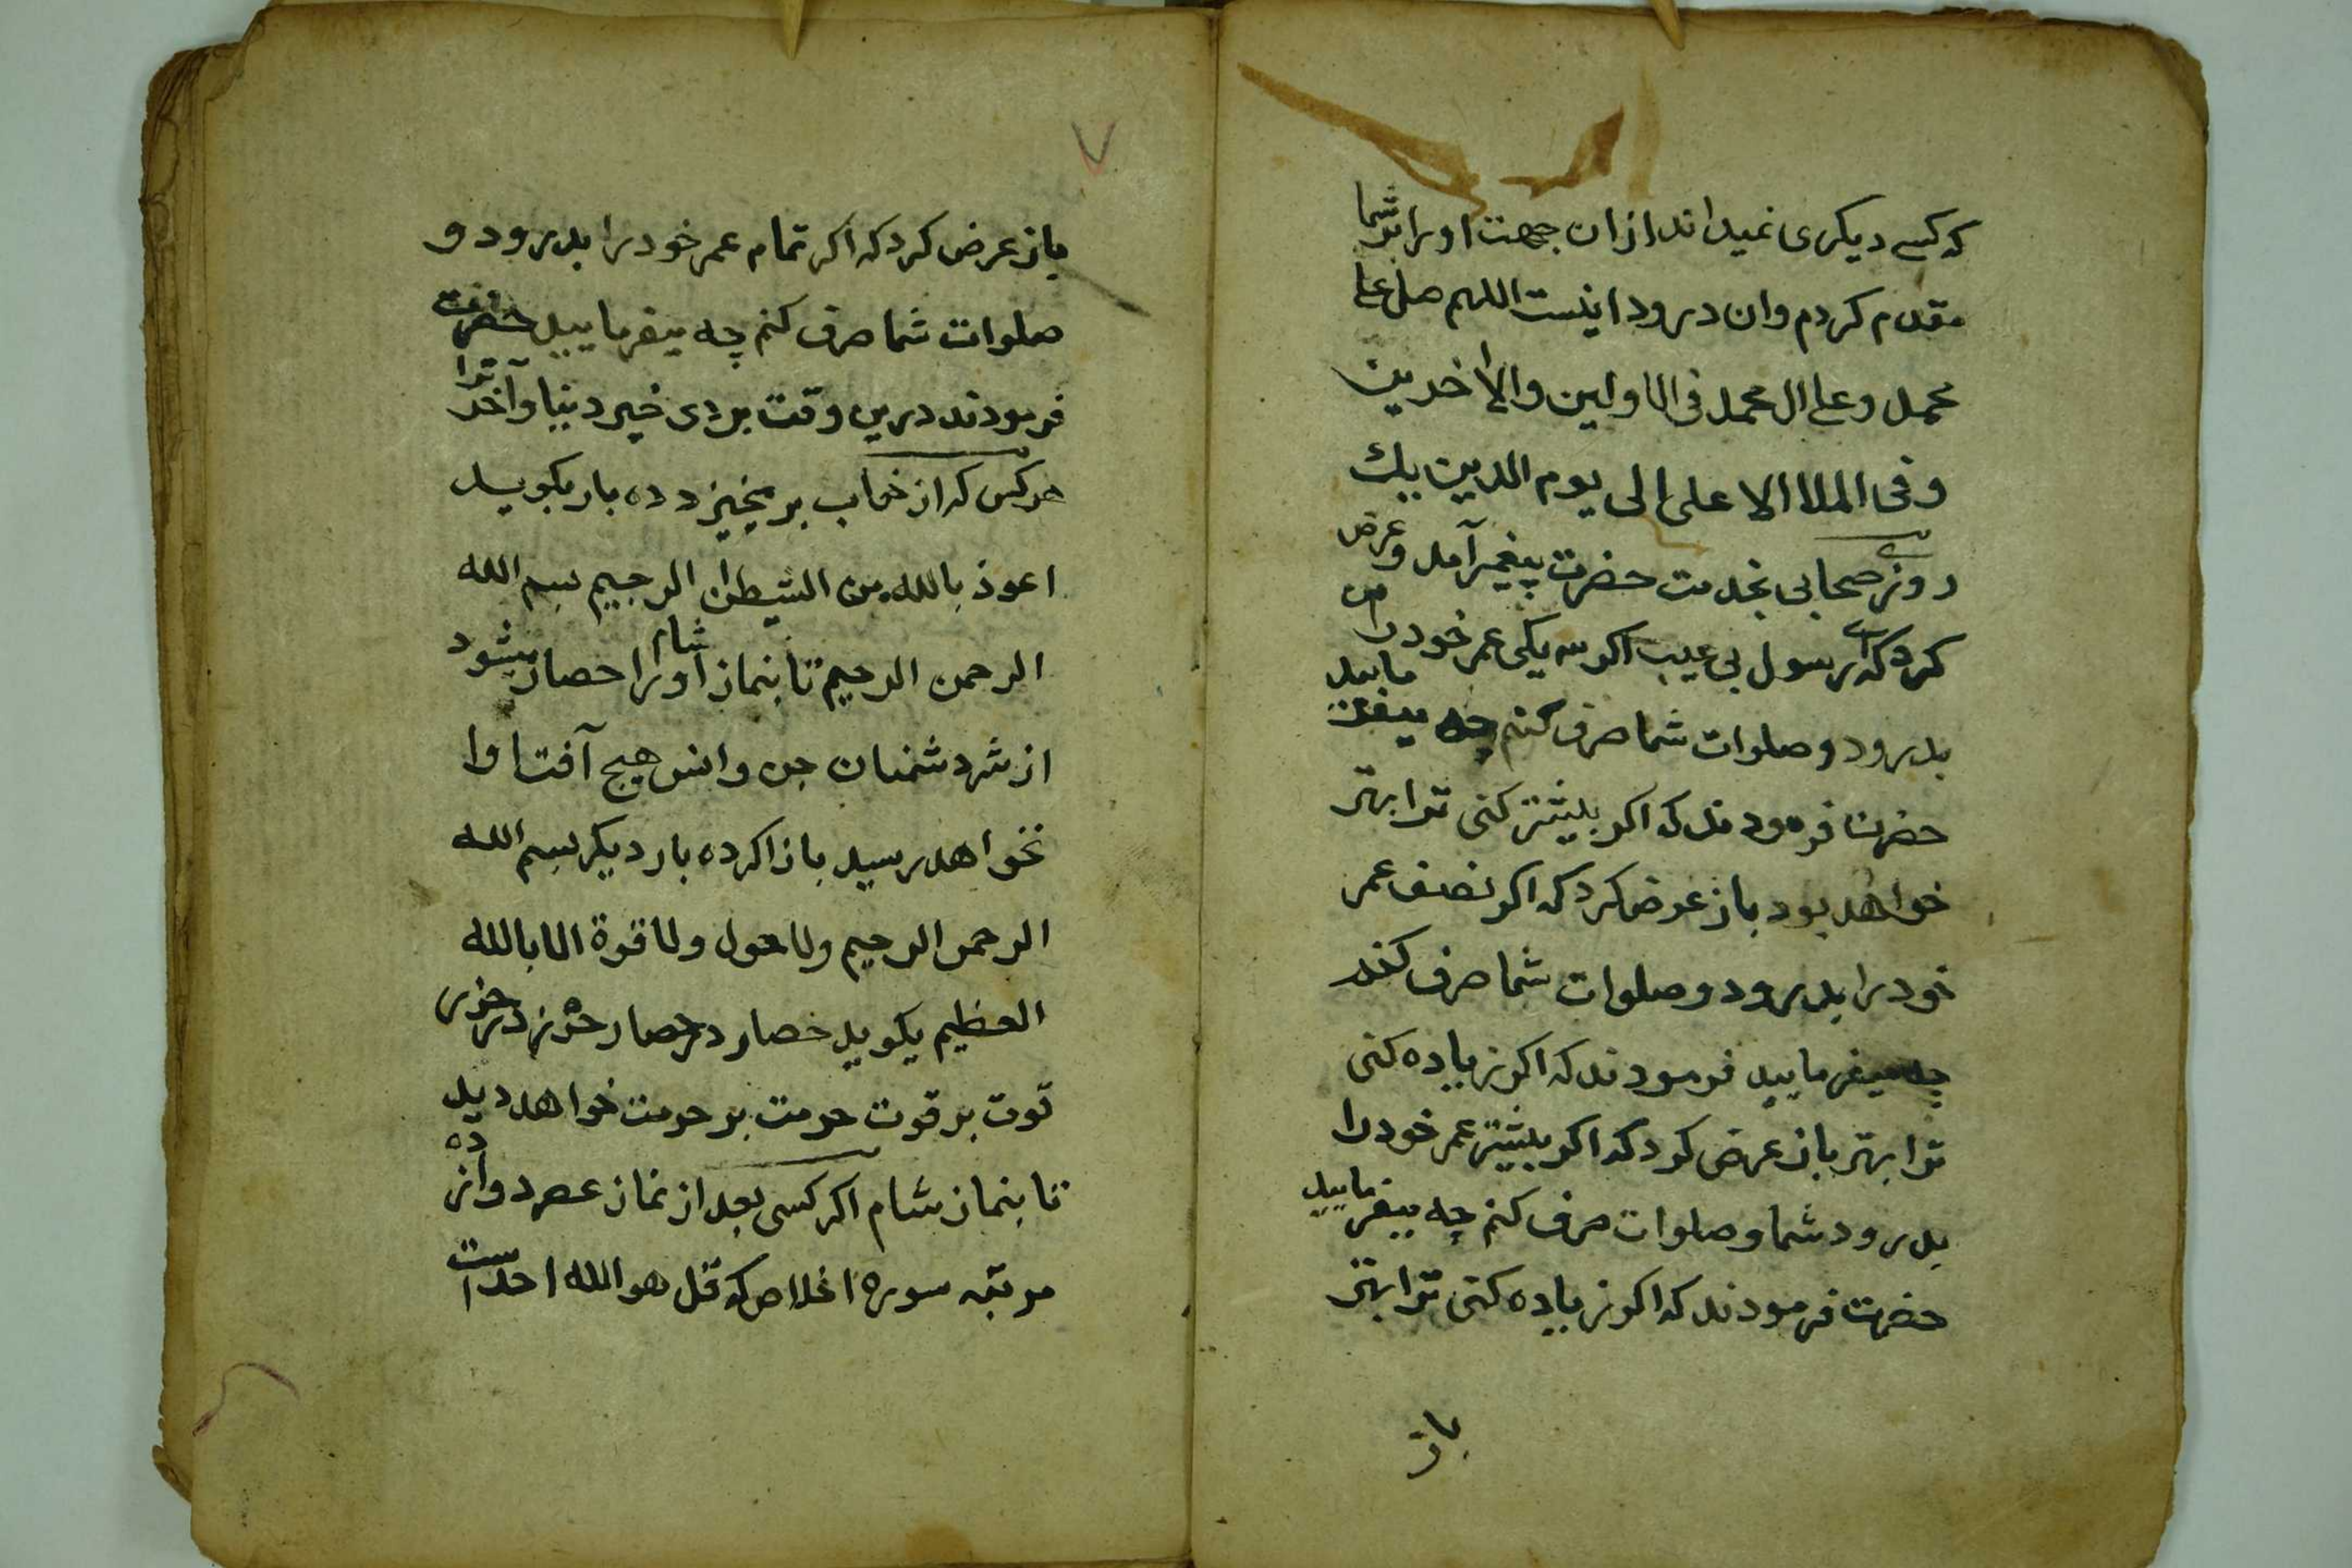 که کسے دیکری نمیداند ازان جهت اورا بر شما
مقدم کردم وان درود اینست اللهم صل علی
محمد وعلی ال محمد فی الاولین والاخرین
وفی الملاالاعلی الی یوم الدین یک
روزے صحابی بخدمت حضرت پیغمبر آمد وعرض
کرد که اے رسول بی عیب اکر سه یکی عمر خود را
بدرود وصلوات شما صرف کنم چه میفرمایید
حضرت فرمودند که اکر بیشتر کنی ترا بهتر
خواهد بود باز عرض کرد که اکر نصف عمر
خود را بدرود وصلوات شما صرف کنم
چه میفرمایید فرمودند که اکر زیاده کنی
ترا بهتر باز عرض کرد که اکر بیشتر عمر خود را
بدرود شما وصلوات صرف کنم چه میفرمایید
حضرت فرمودند که اکر زیاده کنی ترا بهتر
باز
باز عرض کرد که اکر تمام عمر خود را بدرود و
صلوات شما صرف کنم چه میفرمایید حضرت
فرمودند درین وقت بردی خیر دنیا وآخرترا
هرکس که از خواب برمیخیزد ده بار بکوید
اعوذ بالله من الشیطن الرجیم بسم الله
الرحمن الرحیم تا بنماز شام اورا حصار میشود
از شر دشمنان جن وانس هیچ آفت اورا
نخواهد رسید باز اکر ده بار دیکر بسم الله
الرحمن الرحیم ولا حول ولا قوة الا بالله
العظیم بکوید حصار در حصار حرز در حرز
قوت بر قوت حرمت بر حرمت خواهد دید
تا بنماز شام اکر کسی بعد از نماز عصر دوازده
مرتبه سوره اخلاص که قل هو الله احد است